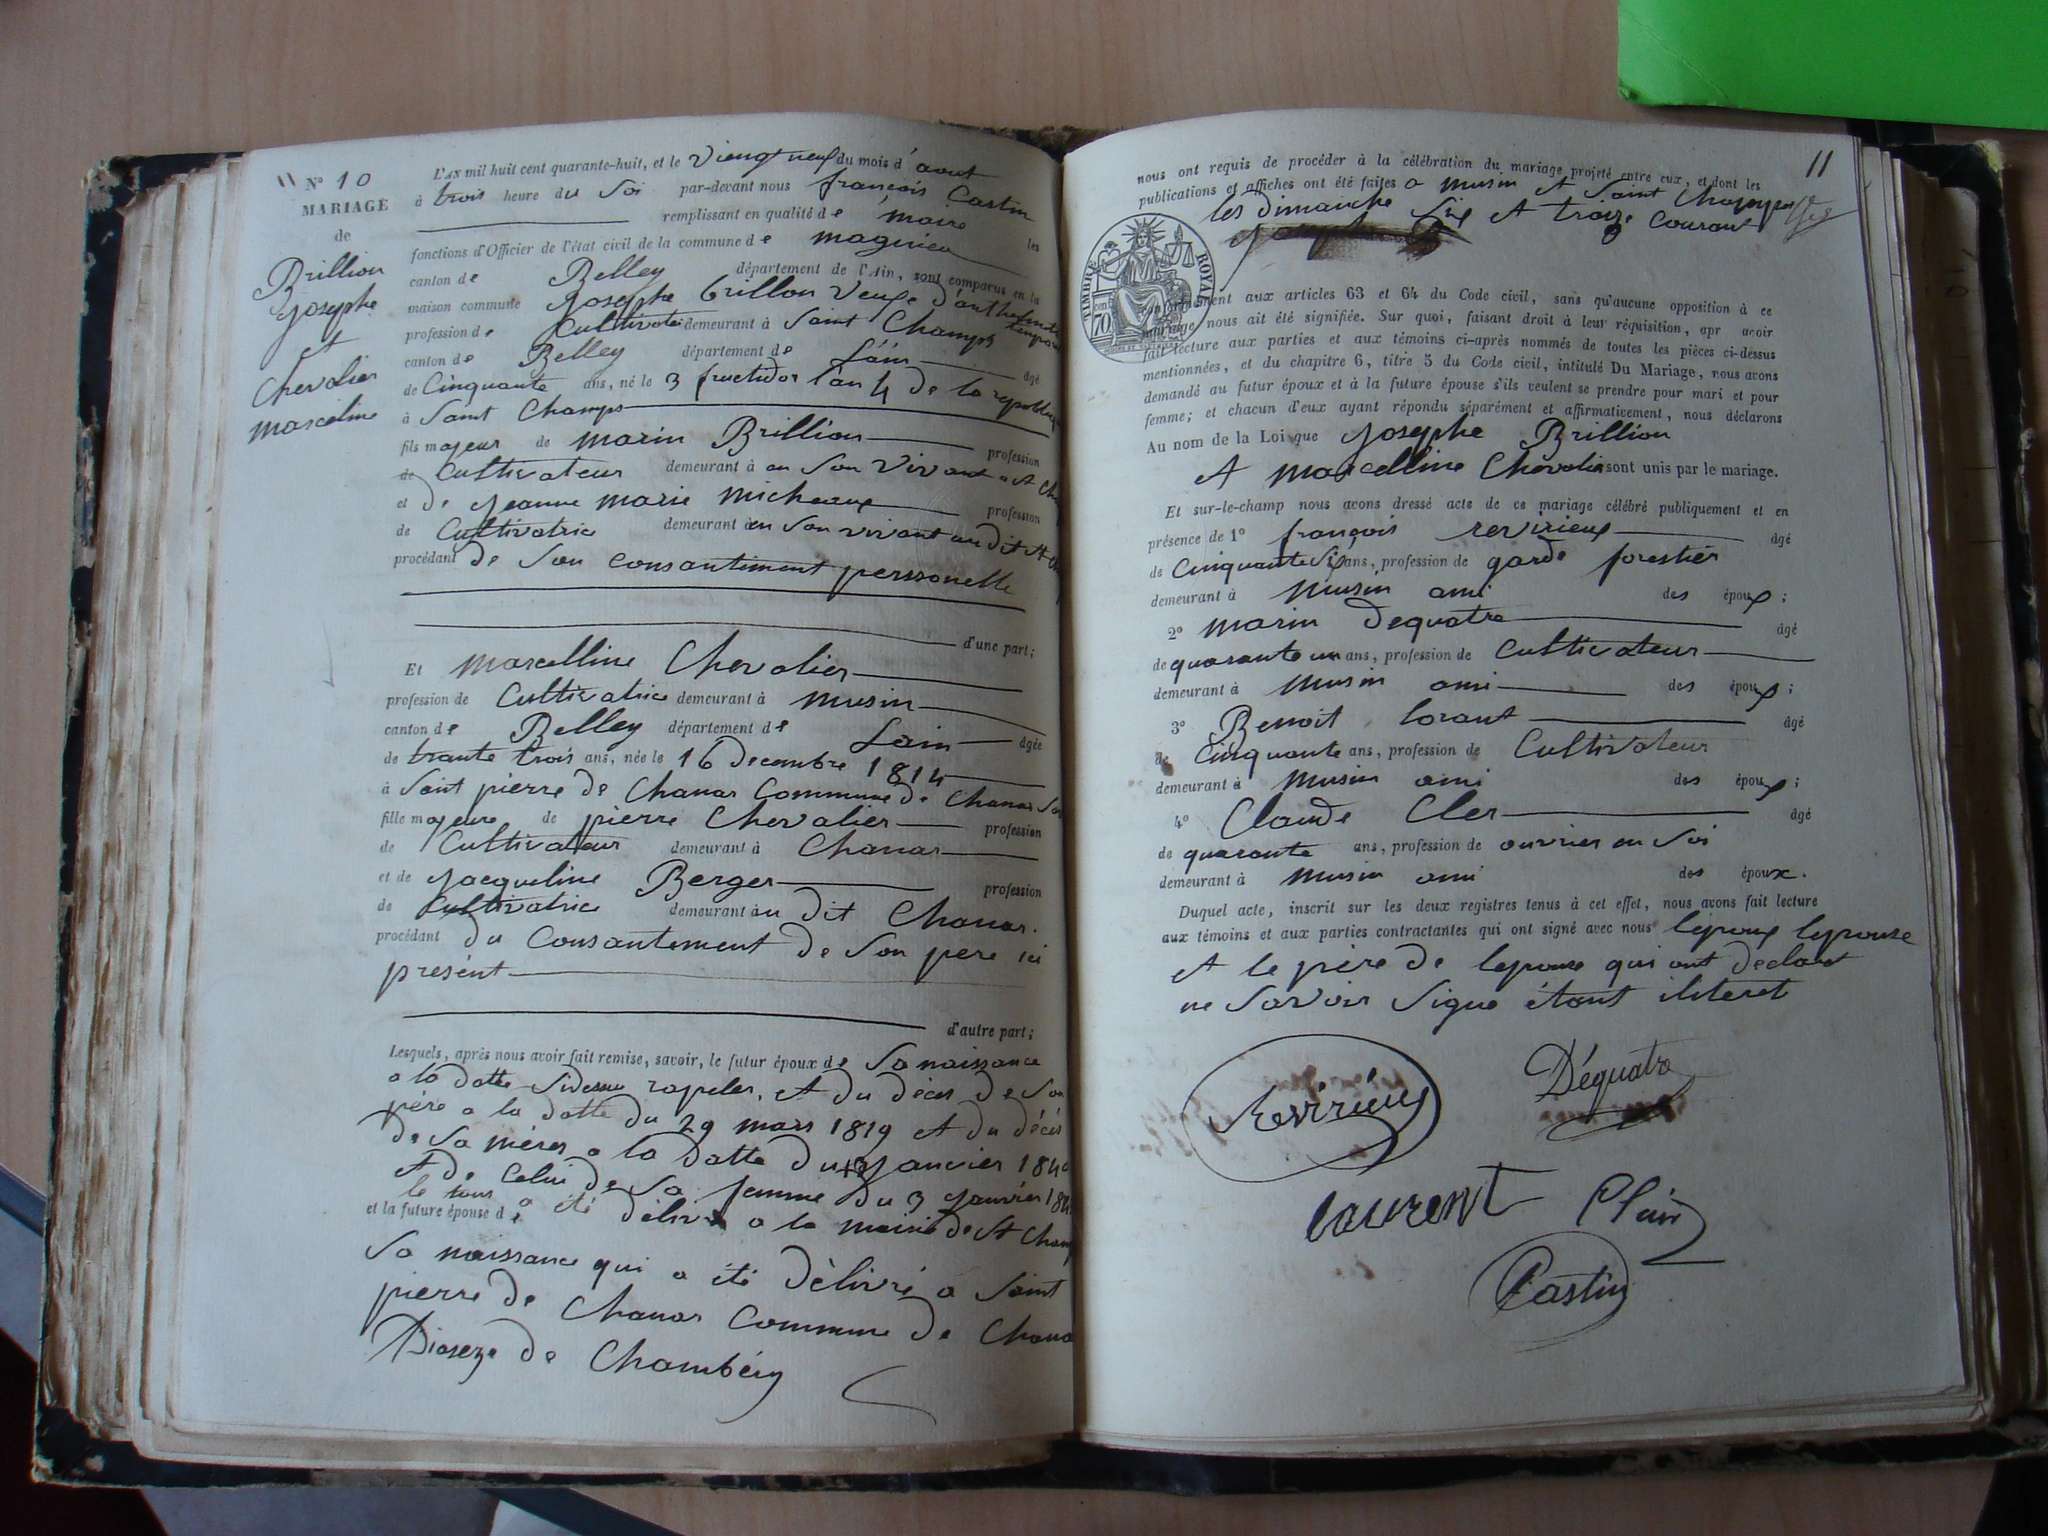 N° 10
MARIAGE
de
Brillion
Josephe
et
Chevalier
Marceline
L'AN mil huit cent quarante-huit, et le viengt neuf du mois d'aout
à trois heure du soi par-devant nous françois Castin
remplissant en qualité de maire les
fonctions d'Officier de l'état civil de la commune de magnieu
canton de Belley département de l'Ain, sont comparus en la
maison commune Josephe brillon veuf d'anthe
profession de Cultivate demeurant à Saint Champs
canton de Belley département de Lain âgé
de Cinquante ans, né le 3 fructidor l'an 4 de la republique
à Saint Champs
fils majeur de marin Brillion profession
de Cultivateur demeurant à en son vivant a St Ch
et de Jeanne marie micheaux profession
de Cultivatrice demeurant à en son vivant au dit St Ch
procédant de son consantiment perssonelle
d'une part;
Et Marcelline Chevalier
profession de Cultivatrice demeurant à musin
canton de Belley département de Lain âgée
de trante trois ans, née le 16 decembre 1814
à Saint pierre de Chanas Commune de Chanas
fille majeure de pierre Chevalier profession
de Cultivateur demeurant à Chanas
et de Jacqueline Berger profession
de Cultivatrice demeurant à au dit Chanas.
procédant du Consantement de son pere ici
présent
d'autre part;
Lesquels, après nous avoir fait remise, savoir, le futur époux de Sa naissance
a la datte sidessue rapeler, et du déces de son
père a la datte du 29 mars 1819 et du décès
de sa mères a la datte du janvier 184
et de Celui de sa femme du 3 janvier 184
le tous a été délivre a la mairie de St Champ
et la future épouse de
Sa naissance qui a été délivré a Saint
pierre de Chanas Commune de Chana
Dioseze de Chambéry
11
nous ont requis de procéder à la célébration du mariage projeté entre eux, et dont les
publications et affiches ont été faites a musin et saint Champs
les dimanche six et traize courant
TIMBRE ROYAL
70
conformément aux articles 63 et 64 du Code civil, sans qu'aucune opposition à ce
mariage nous ait été signifiée. Sur quoi, faisant droit à leur réquisition, apr avoir
fait lecture aux parties et aux témoins ci-après nommés de toutes les pièces ci-dessus
mentionnées, et du chapitre 6, titre 5 du Code civil, intitulé Du Mariage, nous avons
demandé au futur époux et à la future épouse s'ils veulent se prendre pour mari et pour
femme; et chacun d'eux ayant répondu séparément et affirmativement, nous déclarons
Au nom de la Loi que Josephe Brillion
et marcelline Chevalier sont unis par le mariage.
Et sur-le-champ nous avons dressé acte de ce mariage célébré publiquement et en
présence de 1° françois revirieux âgé
de Cinquante six ans, profession de garde forestier
demeurant à musin ami des époux;
2° marin dequatre âgé
de quarante un ans, profession de Cultivateur
demeurant à musin ami des époux;
3° Benoit lorant âgé
de Cinquante ans, profession de Cultivateur
demeurant à musin ami des époux;
4° Claude Cler âgé
de quarante ans, profession de ouvrier en soi
demeurant à musin ami des époux.
Duquel acte, inscrit sur les deux registres tenus à cet effet, nous avons fait lecture
aux témoins et aux parties contractantes qui ont signé avec nous lepoux lepouse
et le père de lepouse qui ont declaret
ne savoir signe étant iliteret
Revirieux
Déquatre
laurent
Clair
Castin